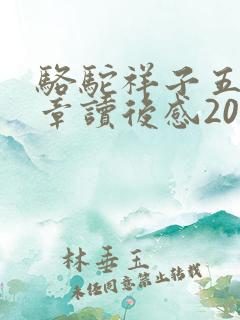 駱駝祥子五
章讀後感20
林垂玉
未经同意禁止转载